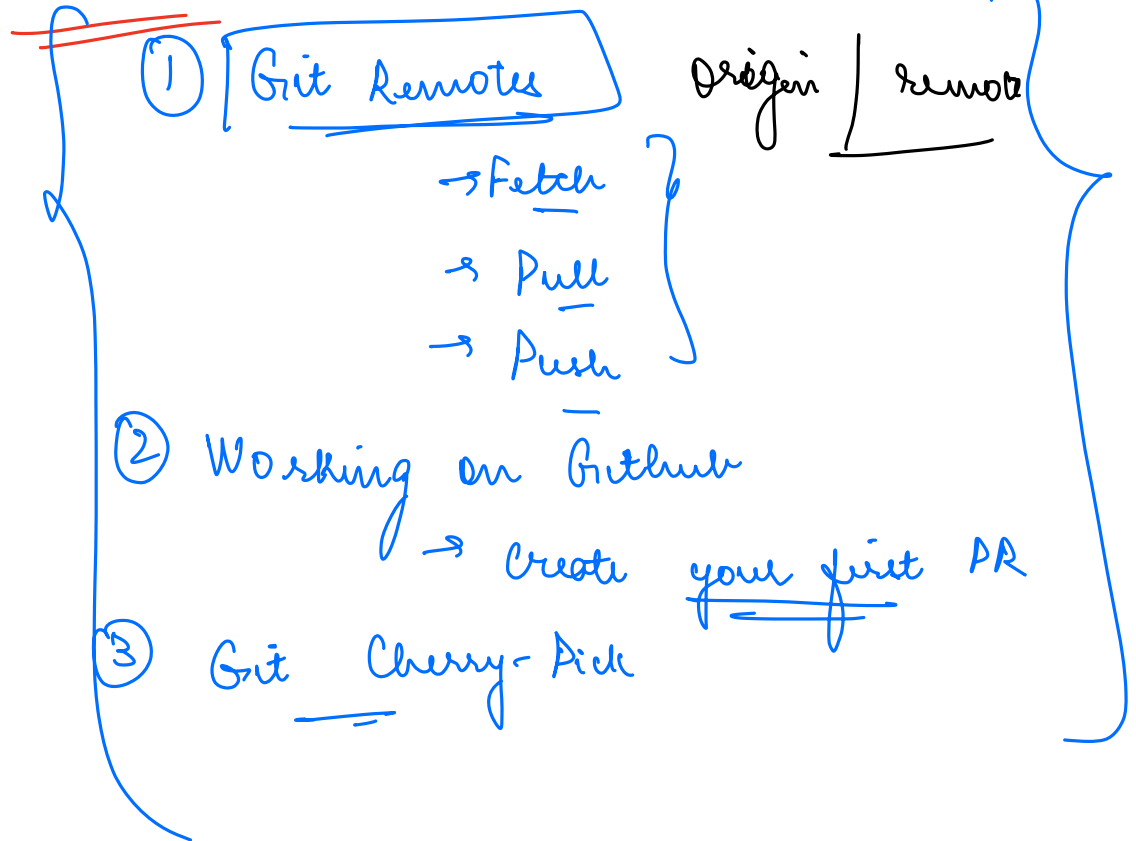 ① Git Remotes origin | remote
→ Fetch
→ Pull
→ Push
② Working on Github
→ Create your first PR
③ Git Cherry-Pick